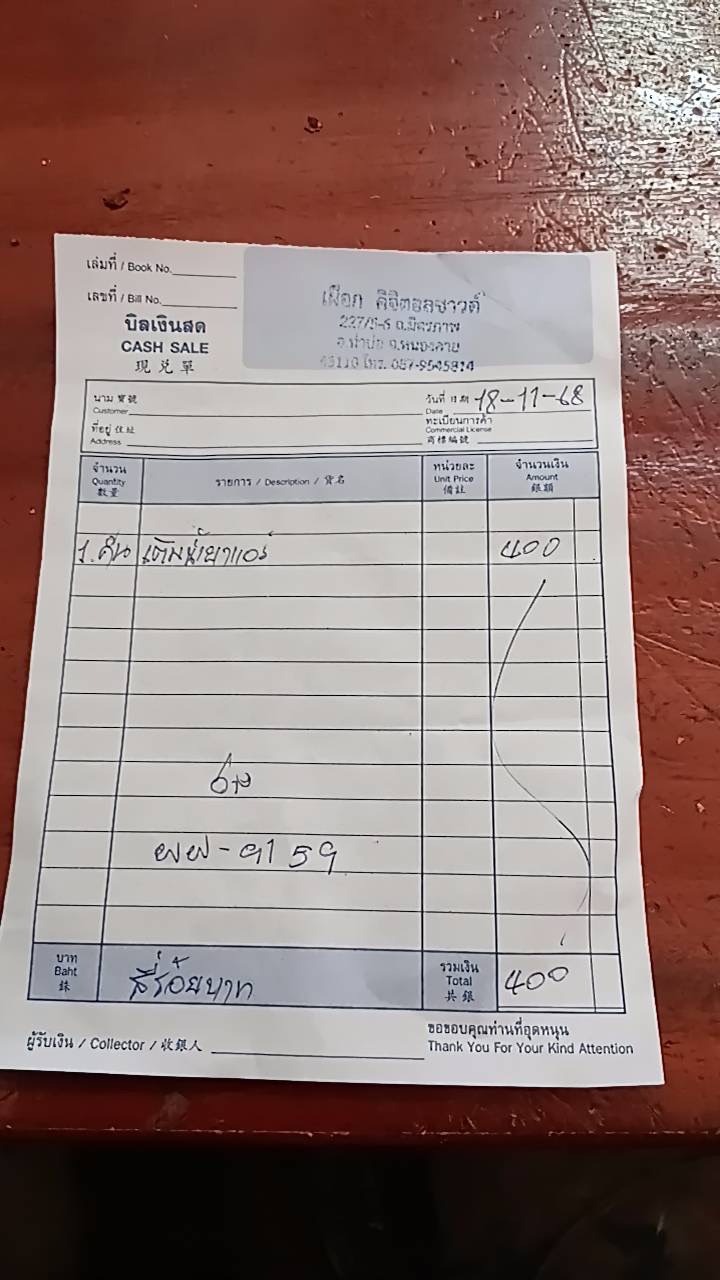 เล่มที่ / Book No.
เลขที่ / Bill No.
บิลเงินสด
CASH SALE
現兌單
เผือก ดิจิตอลซาวด์
227/5-6 ถ.มิตรภาพ
อ.ท่าบ่อ จ.หนองคาย
43110 โทร. 087-9545814
นาม 寶號
Customer
วันที่ 日期 18-11-68
Date
ที่อยู่ 住址
Address
ทะเบียนการค้า
Commercial License
商標編號
จำนวน
Quantity
數量
รายการ / Description / 貨名
หน่วยละ
Unit Price
備註
จำนวนเงิน
Amount
銀額
1. คัน เติมน้ำยาแอร์ 400
ผผ-9159
บาท
Baht
銖
สี่ร้อยบาท
รวมเงิน
Total
共銀
400
ผู้รับเงิน / Collector / 收銀人
ขอขอบคุณท่านที่อุดหนุน
Thank You For Your Kind Attention